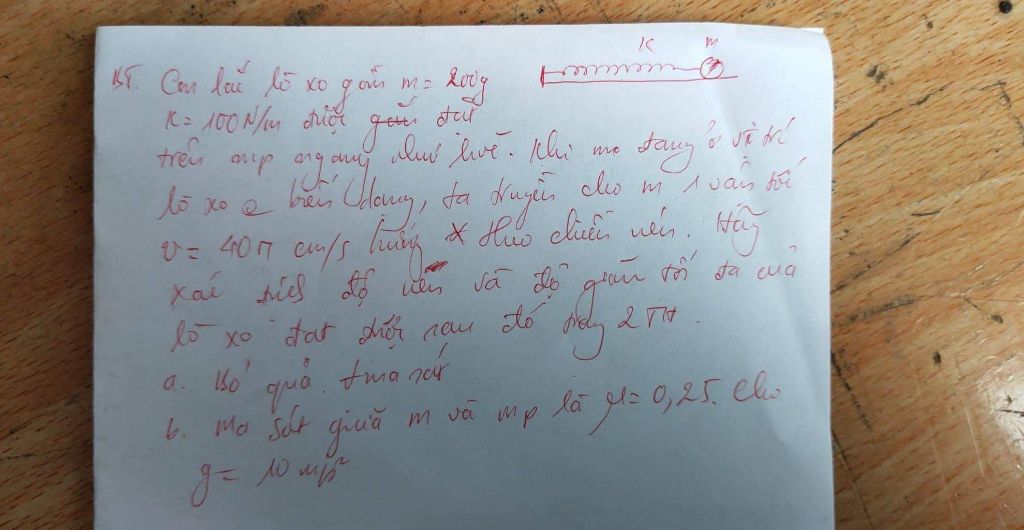 K m
BT. Con lắc lò xo gồm m = 200g
K = 100N/m được gắn đặt
trên mp ngang như hvẽ. Khi m đang ở vị trí
lò xo k biến dạng, ta truyền cho m 1 vận tốc
v = 40π cm/s hướng theo chiều nén. Hãy
xác định độ nén và độ giãn tối đa của
lò xo đạt được sau đó trong 2 TH.
a. Bỏ qua ma sát
b. Ma sát giữa m và mp là μ = 0,25. Cho
g = 10 m/s²